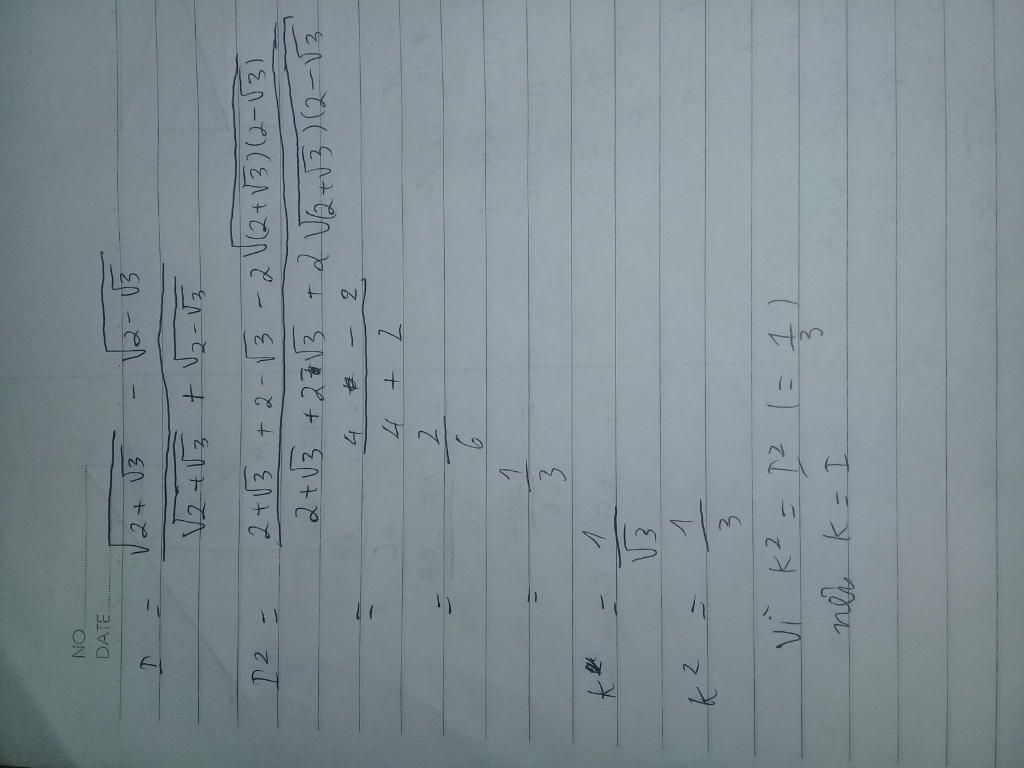 NO
DATE
I = (√(2+√3) - √(2-√3)) / (√(2+√3) + √(2-√3))
I2 = (2+√3 + 2-√3 - 2√((2+√3)(2-√3))) / (2+√3 + 2-√3 + 2√((2+√3)(2-√3)
= (4 - 2) / (4 + 2)
= 2/6
= 1/3
K = 1/√3
K² = 1/3
Vì K² = I² (= 1/3)
nên K = I